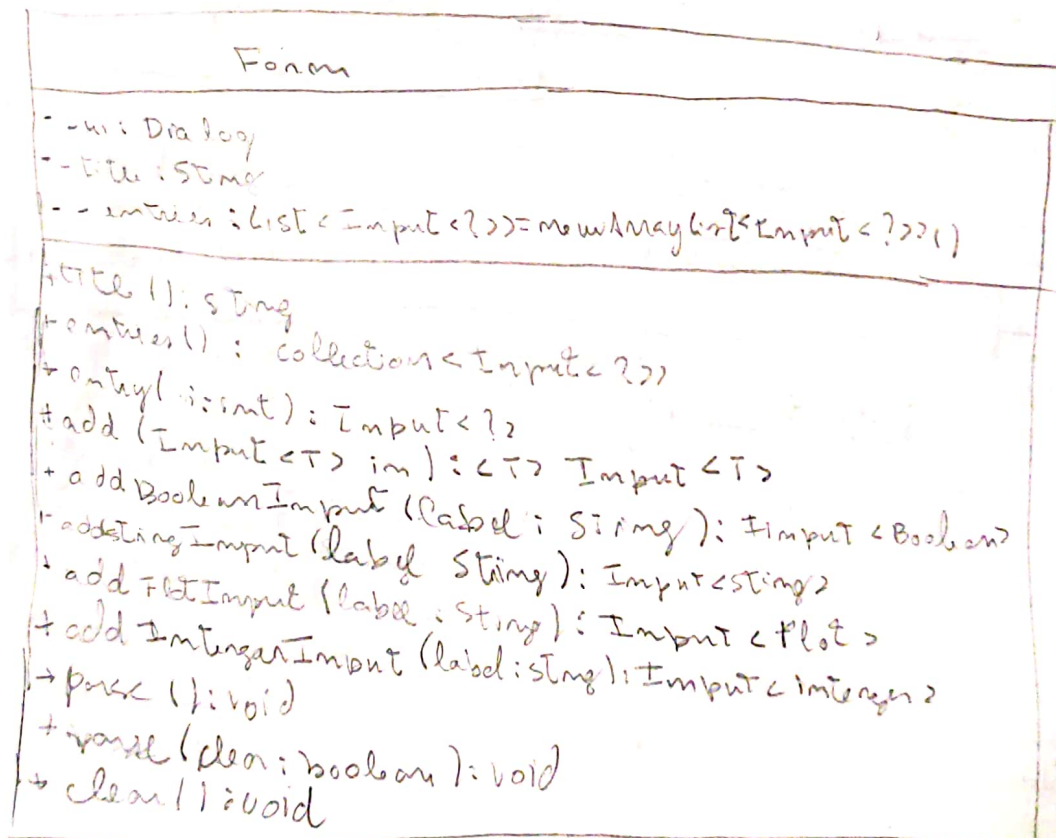 Form
- -ui: Dialog
- -title: String
- - entries: List<Input<?>>=new ArrayList<Input<?>>()
+title(): string
+entries(): collection<Input<?>>
+ entry(i:int): Input<?>
+add (Input<T> in): <T> Input <T>
+ addBooleanInput (label: String): Input <Boolean>
+ addstingInput(label String): Input<sting>
+ add FlotInput (label: Sting): Input <flot>
+ add IntengerInput (label: string): Input<intenger>
+ parse (): void
+ parse (clear: boolean): void
+ clear(): void